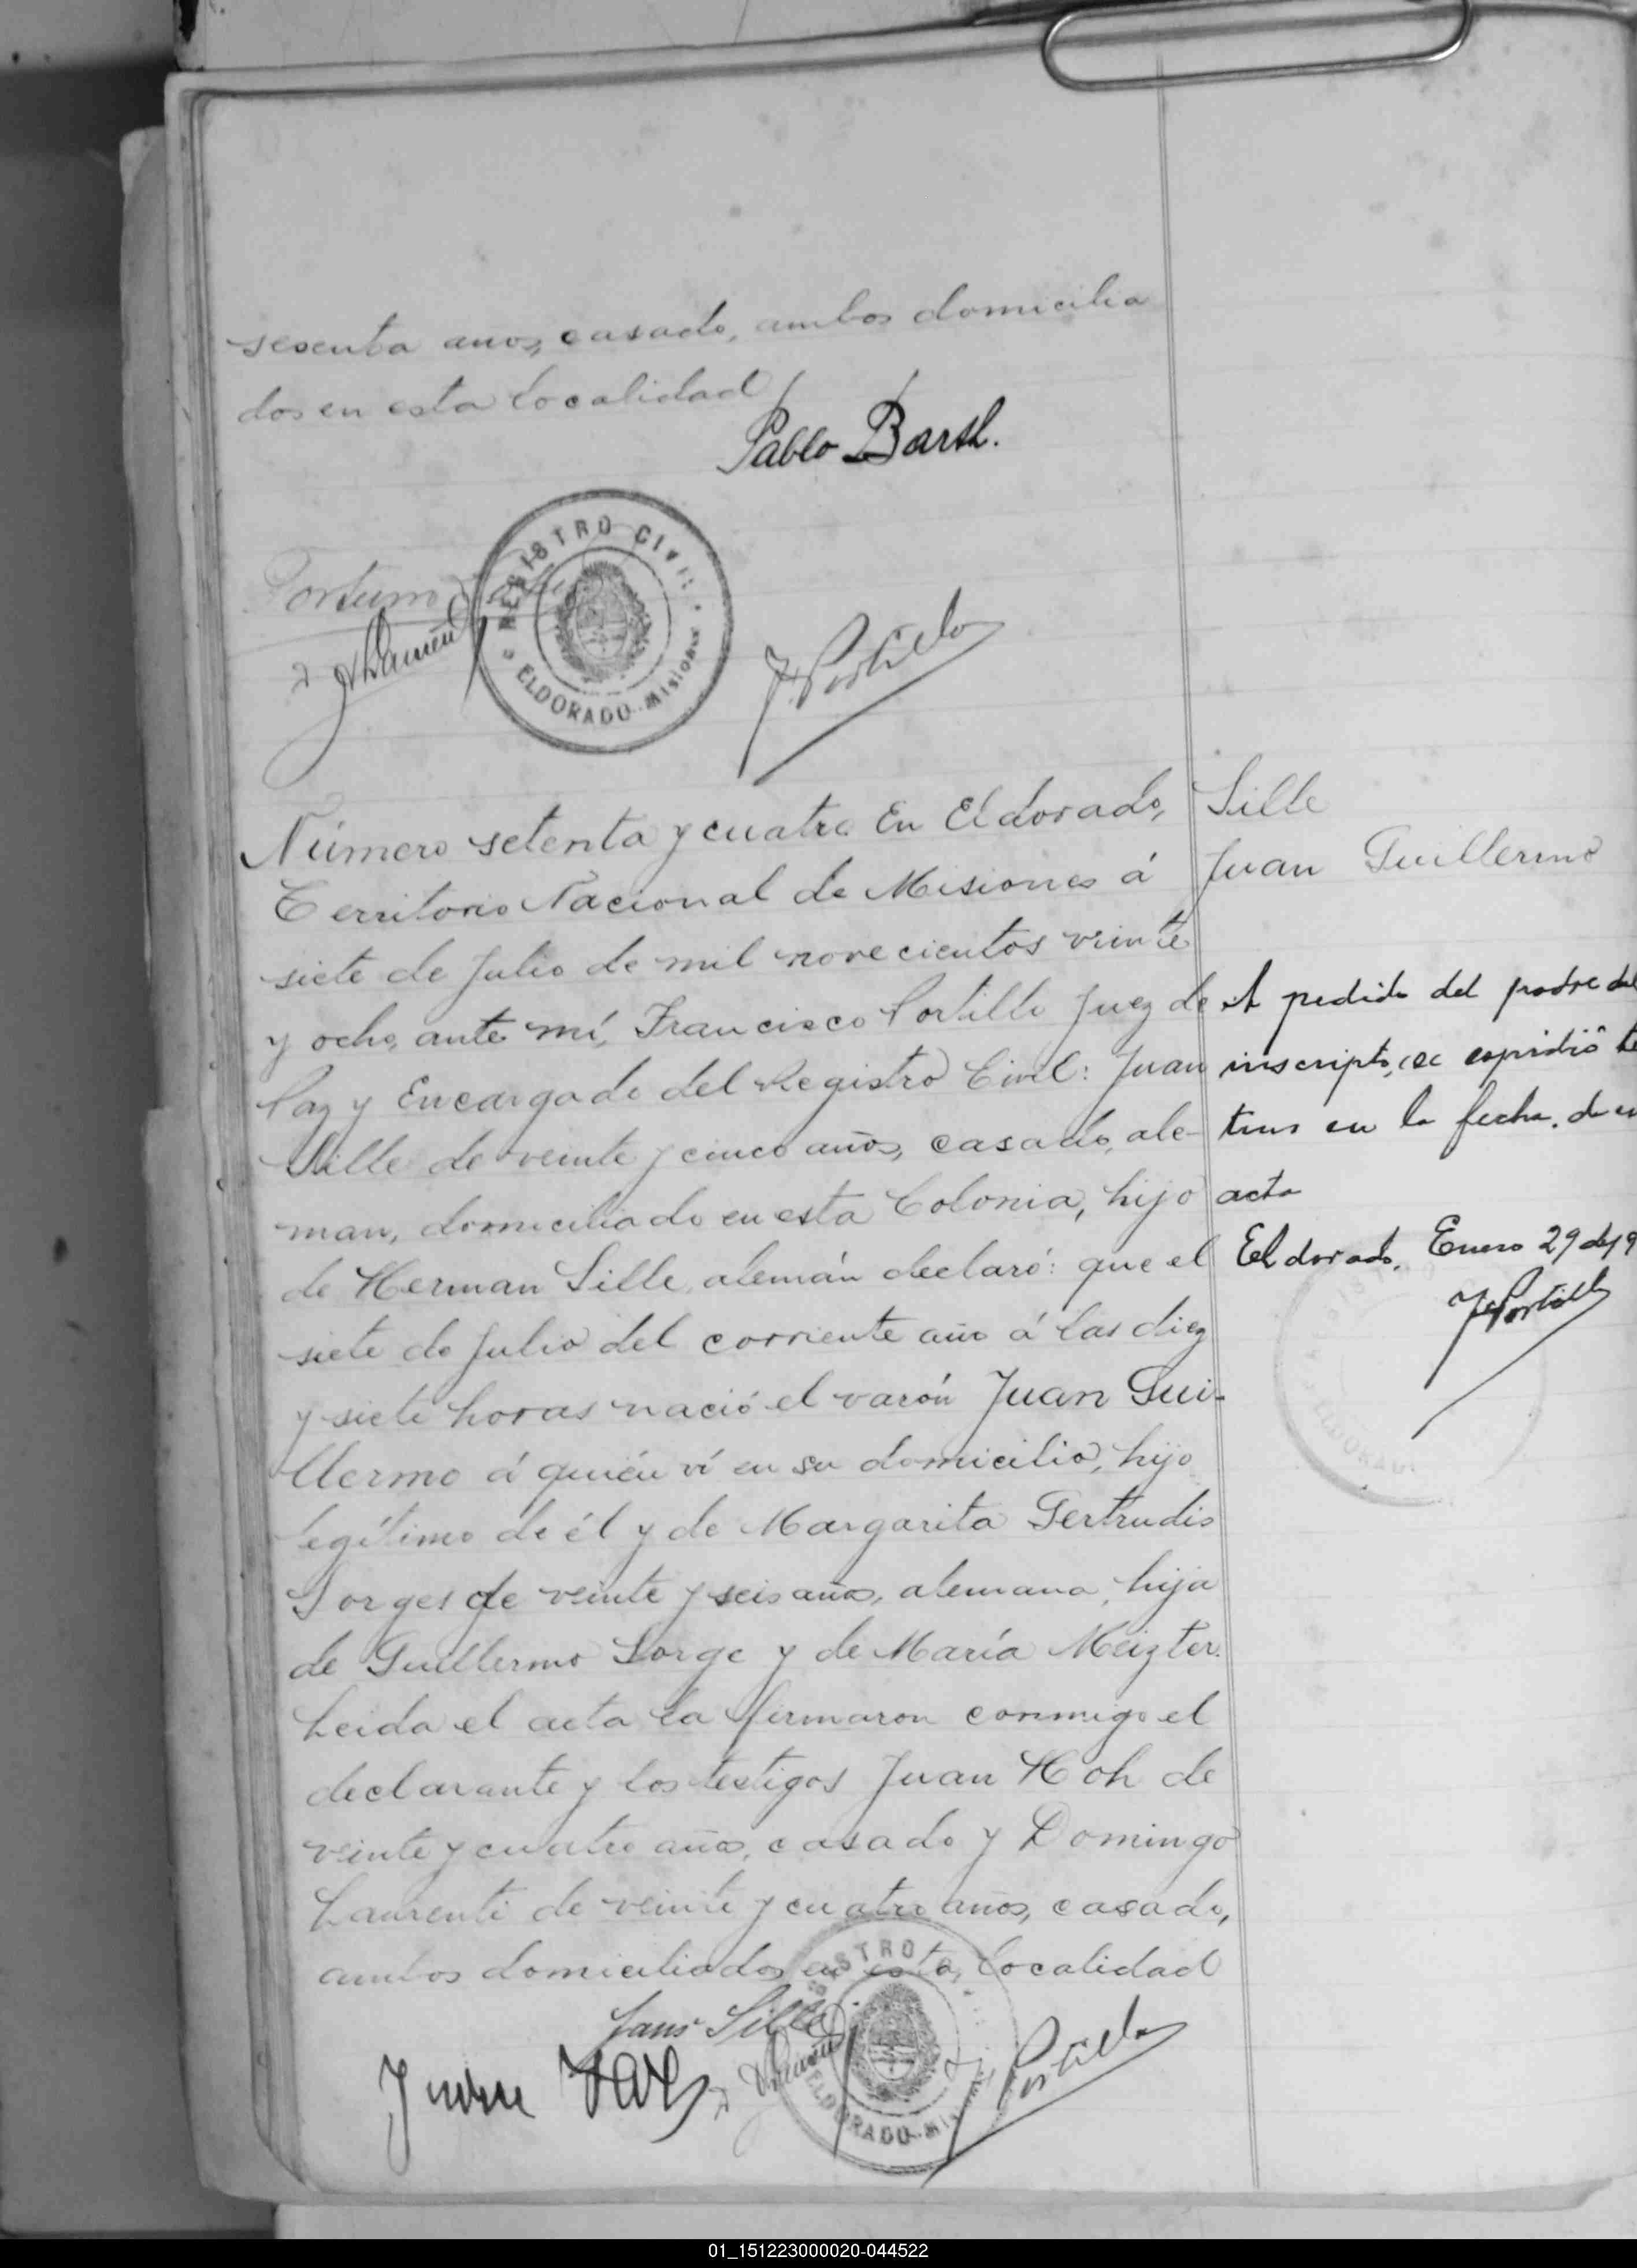 sesenta anos, casado, ambos domicilia
dos en esta localidad
Pablo Barsl.
REGISTRO CIVIL
ELDORADO - Misiones
J. Portillo
Número setenta y cuatro En Eldorado,
Territorio Nacional de Misiones á
siete de Julio de mil novecientos veinte
y ocho, ante mí, Francisco Portillo Juez de
Paz y Encargado del Registro Civil: Juan
Sille de veinte y cinco años, casado, ale-
man, domiciliado en esta Colonia, hijo
de Herman Sille, alemán declaró: que el
siete de Julio del corriente año á las diez
y siete horas nació el varón Juan Gui-
llermo á quién ví en su domicilio, hijo
legítimo de él y de Margarita Gertrudis
Sorges de veinte y seis años, alemana, hija
de Guillermo Sorge y de María Meizter.
Leida el acta la firmaron conmigo el
declarante y los testigos Juan Hoh de
veinte y cuatro años, casado y Domingo
Laurenti de veinte y cuatro años, casado,
ambos domiciliados en esta localidad
Hans Sille
Portillo
REGISTRO
ELDORADO - Mi
Sille
Juan Guillermo
A pedido del padre del
inscripto, se expidió te
tino en la fecha. de es
acta
Eldorado, Enero 29 de 19
J. Portillo
ELDORADO
01_151223000020-044522